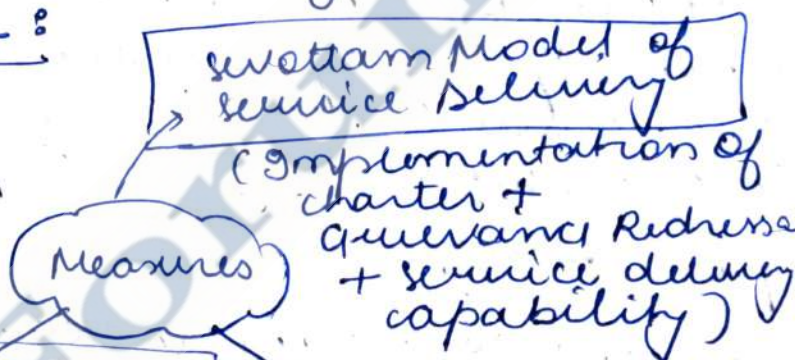 Sevottam Model of
Service Delivery
(Implementation of
charter +
Grievance Redressa
+ service delivery
capability)
Measures